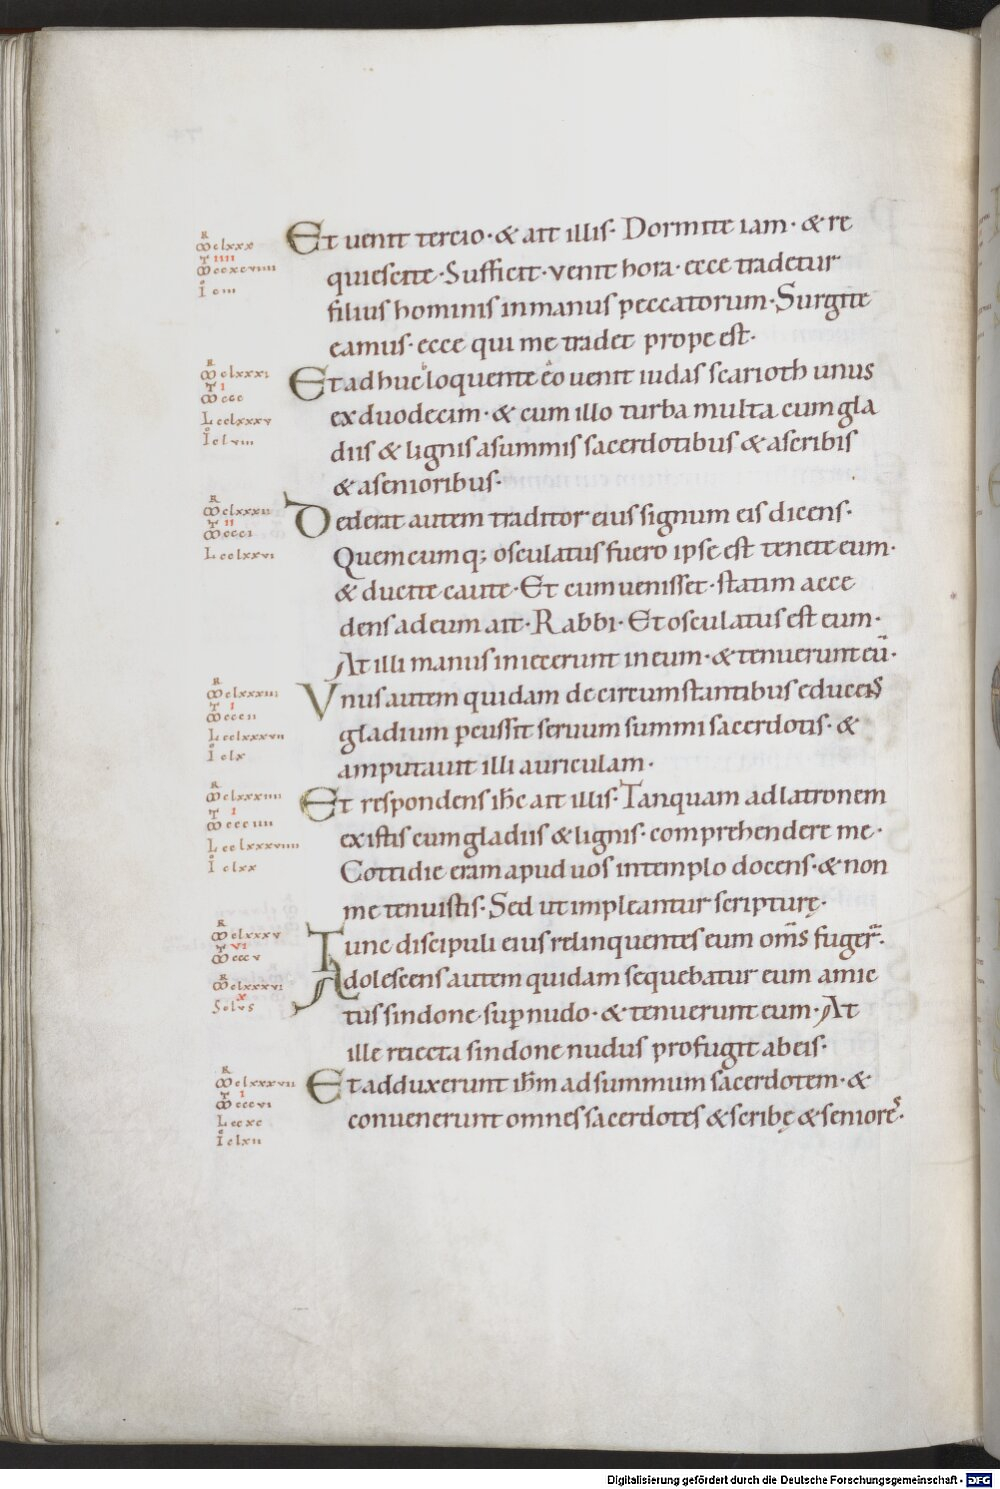 Et uenit tercio · & ait illis · Dormite iam · & re
quiescite · Sufficit · venit hora · ecce tradetur
filius hominis inmanus peccatorum · Surgite
eamus · ecce qui me tradet prope est ·
Et adhuc loquente eo uenit iudas scarioth unus
ex duodecim · & cum illo turba multa cum gla
diis & lignis asummis sacerdotibus & ascribis
& asenioribus ·
Dederat autem traditor eius signum eis dicens ·
Quemcumq; osculatus fuero ipse est tenete eum ·
& ducite caute · Et cum uenisset · statim acce
dens ad eum ait · Rabbi · Et osculatus est eum ·
At illi manus iniecerunt in eum · & tenuerunt eū ·
Vnus autem quidam de circumstantibus educens
gladium ꝑcussit seruum summi sacerdotis · &
amputauit illi auriculam ·
Et respondens ihc ait illis · Tanquam ad latronem
existis cum gladiis & lignis · comprehendere me ·
Cottidie eram apud uos in templo docens · & non
me tenuistis · Sed ut impleantur scripturę ·
Tunc discipuli eius relinquentes eum om̄s fuger̄ ·
Adolescens autem quidam sequebatur eum amic
tus sindone suꝑ nudo · & tenuerunt eum · At
ille reiecta sindone nudus profugit abeis ·
Et adduxerunt ihm ad summum sacerdotem · &
conuenerunt omnes sacerdotes & scribę & seniores ·
R
clxxx
T IIII
ccxcviiii
I ciii
R
clxxxi
T I
ccc
L cclxxxv
I clviii
R
clxxxii
T II
ccci
L cclxxvi
R
clxxxiii
T I
cccii
L cclxxxvii
I clx
R
clxxxiiii
T I
ccciiii
L cclxxxviiii
I clxx
R
clxxxv
T VI
cccv
R
clxxxvi
X
Solus
R
clxxxvii
T I
cccvi
L ccxc
I clxii
Digitalisierung gefördert durch die Deutsche Forschungsgemeinschaft - DFG